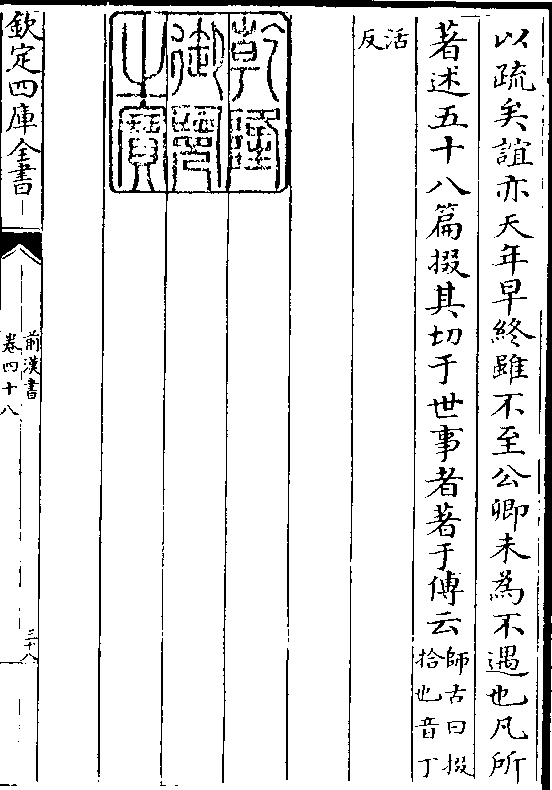 以疏矣誼亦天年早終雖不至公卿未為不遇也凡所
著述五十八篇掇其切于世事者著于傳云師古曰掇拾也音丁
活反
乾隆御覽之寶
欽定四庫全書
前漢書
卷四十八
三十八